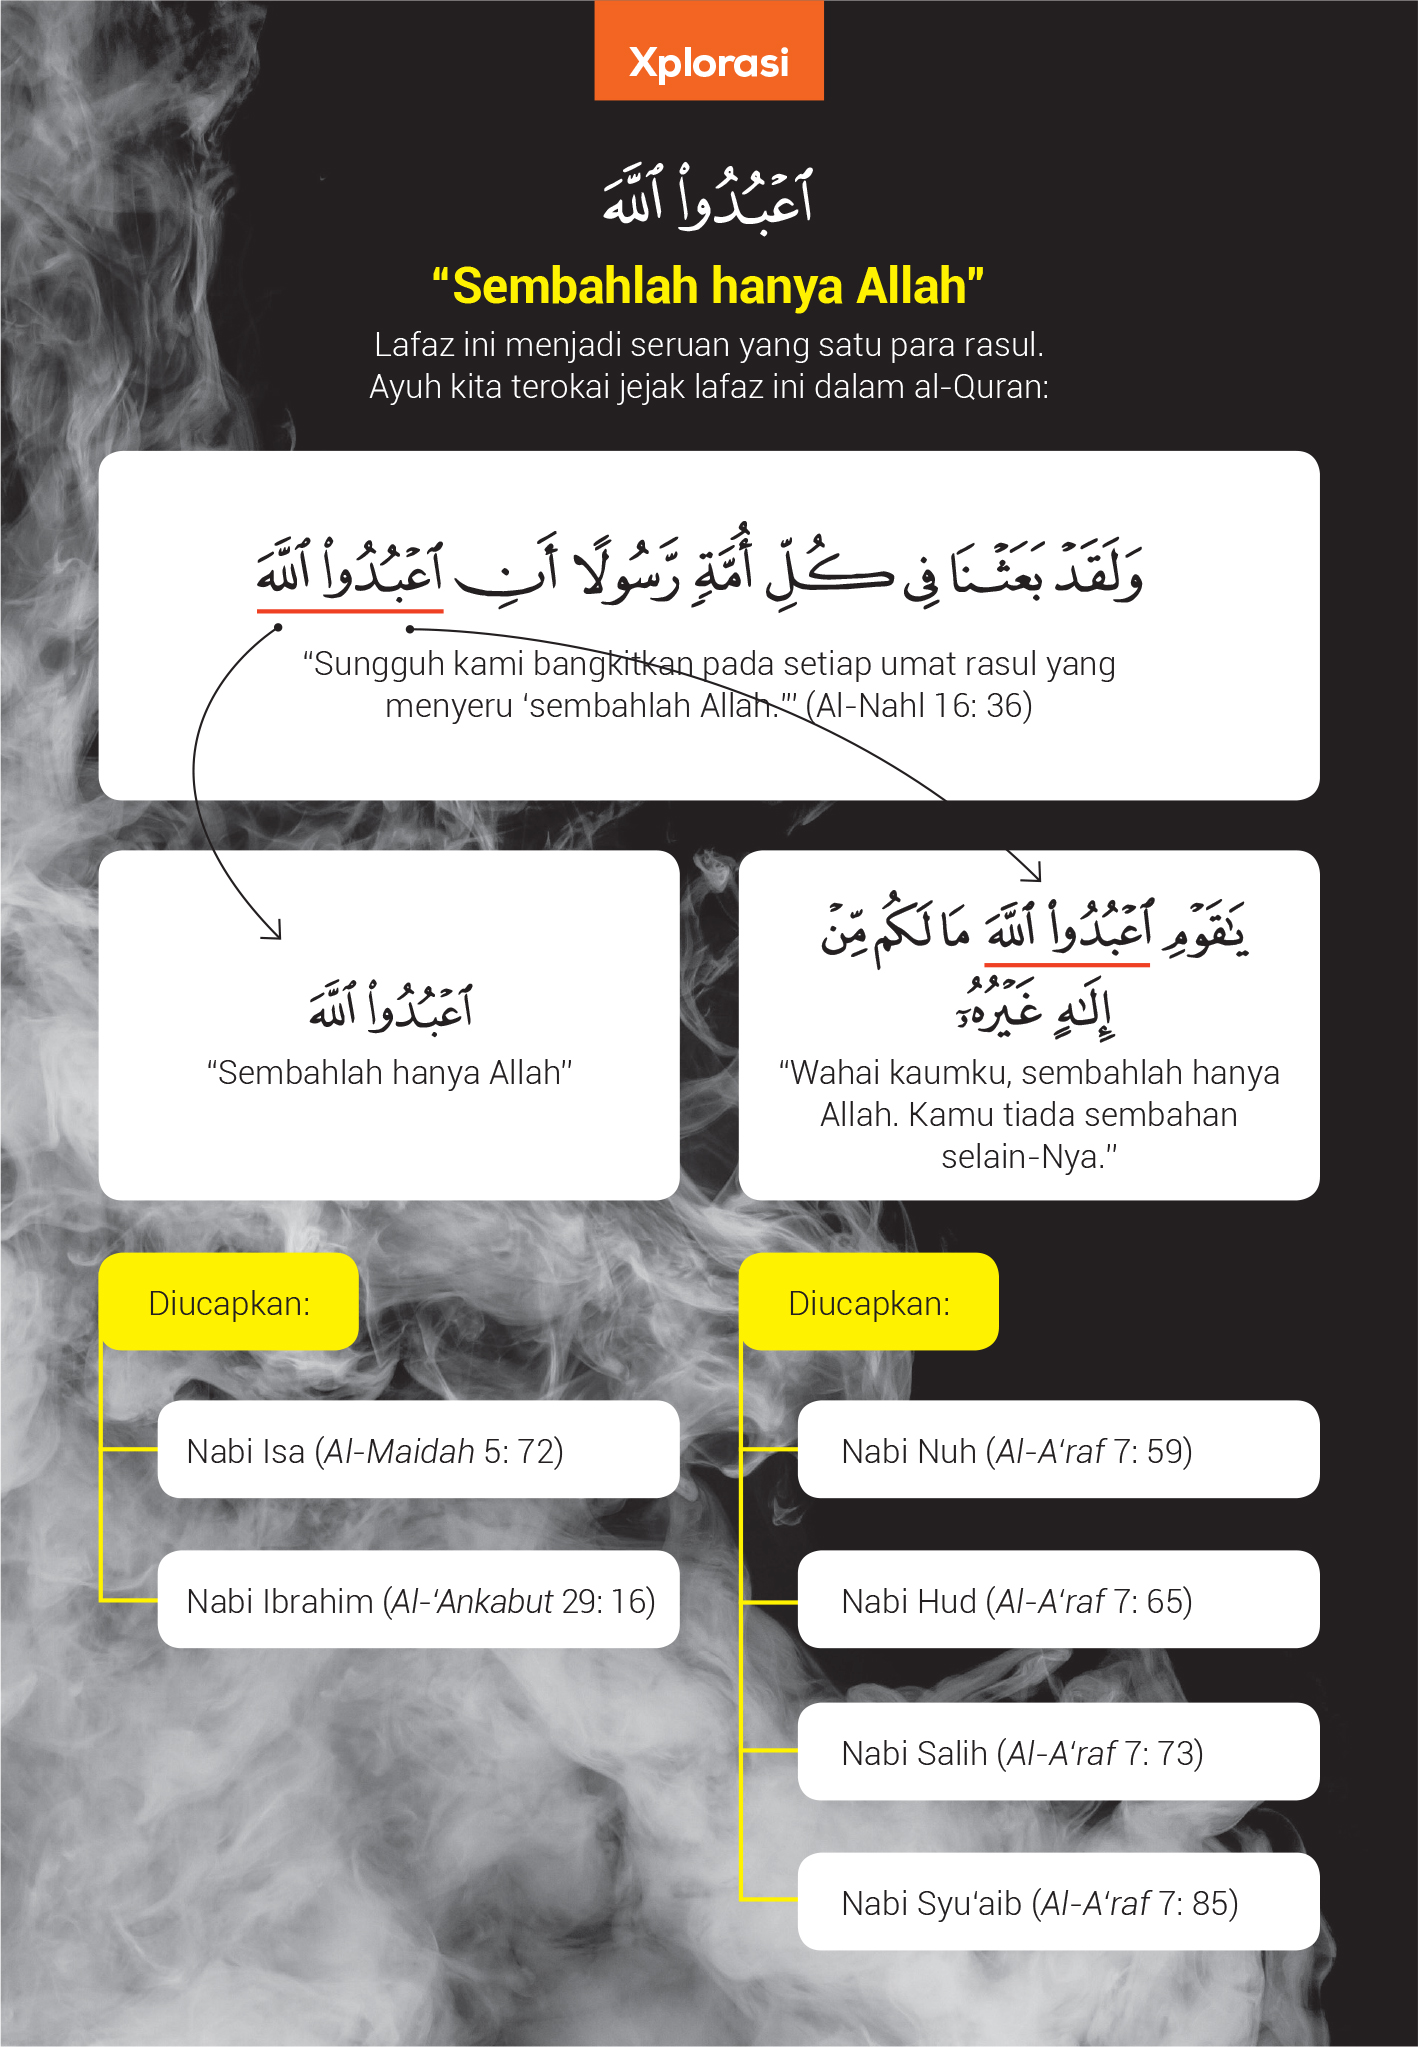 Xplorasi
ٱعۡبُدُواْ ٱللَّهَ
“Sembahlah hanya Allah”
Lafaz ini menjadi seruan yang satu para rasul.
Ayuh kita terokai jejak lafaz ini dalam al-Quran:
وَلَقَدۡ بَعَثۡنَا فِي كُلِّ أُمَّةٖ رَّسُولًا أَنِ ٱعۡبُدُواْ ٱللَّهَ
“Sungguh kami bangkitkan pada setiap umat rasul yang
menyeru ‘sembahlah Allah.’” (Al-Nahl 16: 36)
ٱعۡبُدُواْ ٱللَّهَ
“Sembahlah hanya Allah”
يَٰقَوۡمِ ٱعۡبُدُواْ ٱللَّهَ مَا لَكُم مِّنۡ
إِلَٰهٍ غَيۡرُهُۥٓ
“Wahai kaumku, sembahlah hanya
Allah. Kamu tiada sembahan
selain-Nya.”
Diucapkan:
Nabi Isa (Al-Maidah 5: 72)
Nabi Ibrahim (Al-‘Ankabut 29: 16)
Diucapkan:
Nabi Nuh (Al-A‘raf 7: 59)
Nabi Hud (Al-A‘raf 7: 65)
Nabi Salih (Al-A‘raf 7: 73)
Nabi Syu‘aib (Al-A‘raf 7: 85)